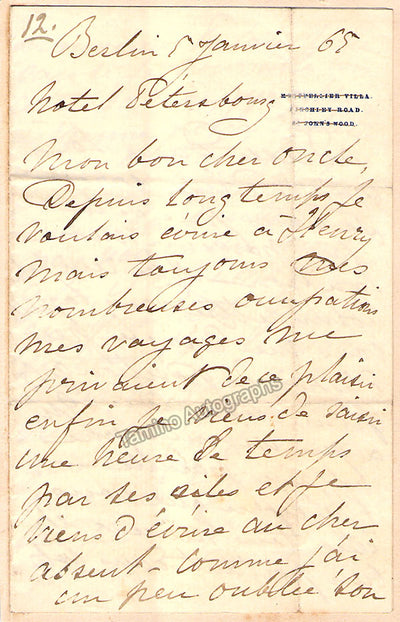 12.
Berlin 5 Janvier 65
Hotel Pétersbourg
MONTPELLIER VILLA.
FINCHLEY ROAD.
ST JOHN'S WOOD.
Mon bon cher oncle,
Depuis longtemps je
voulais écrire à Henry
mais toujours mes
nombreuses occupations
mes voyages me
privaient de ce plaisir
enfin je viens de saisir
une heure de temps
par ses ailes et je
viens d'écrire au cher
absent - comme j'ai
un peu oublié son
Tamino Autographs